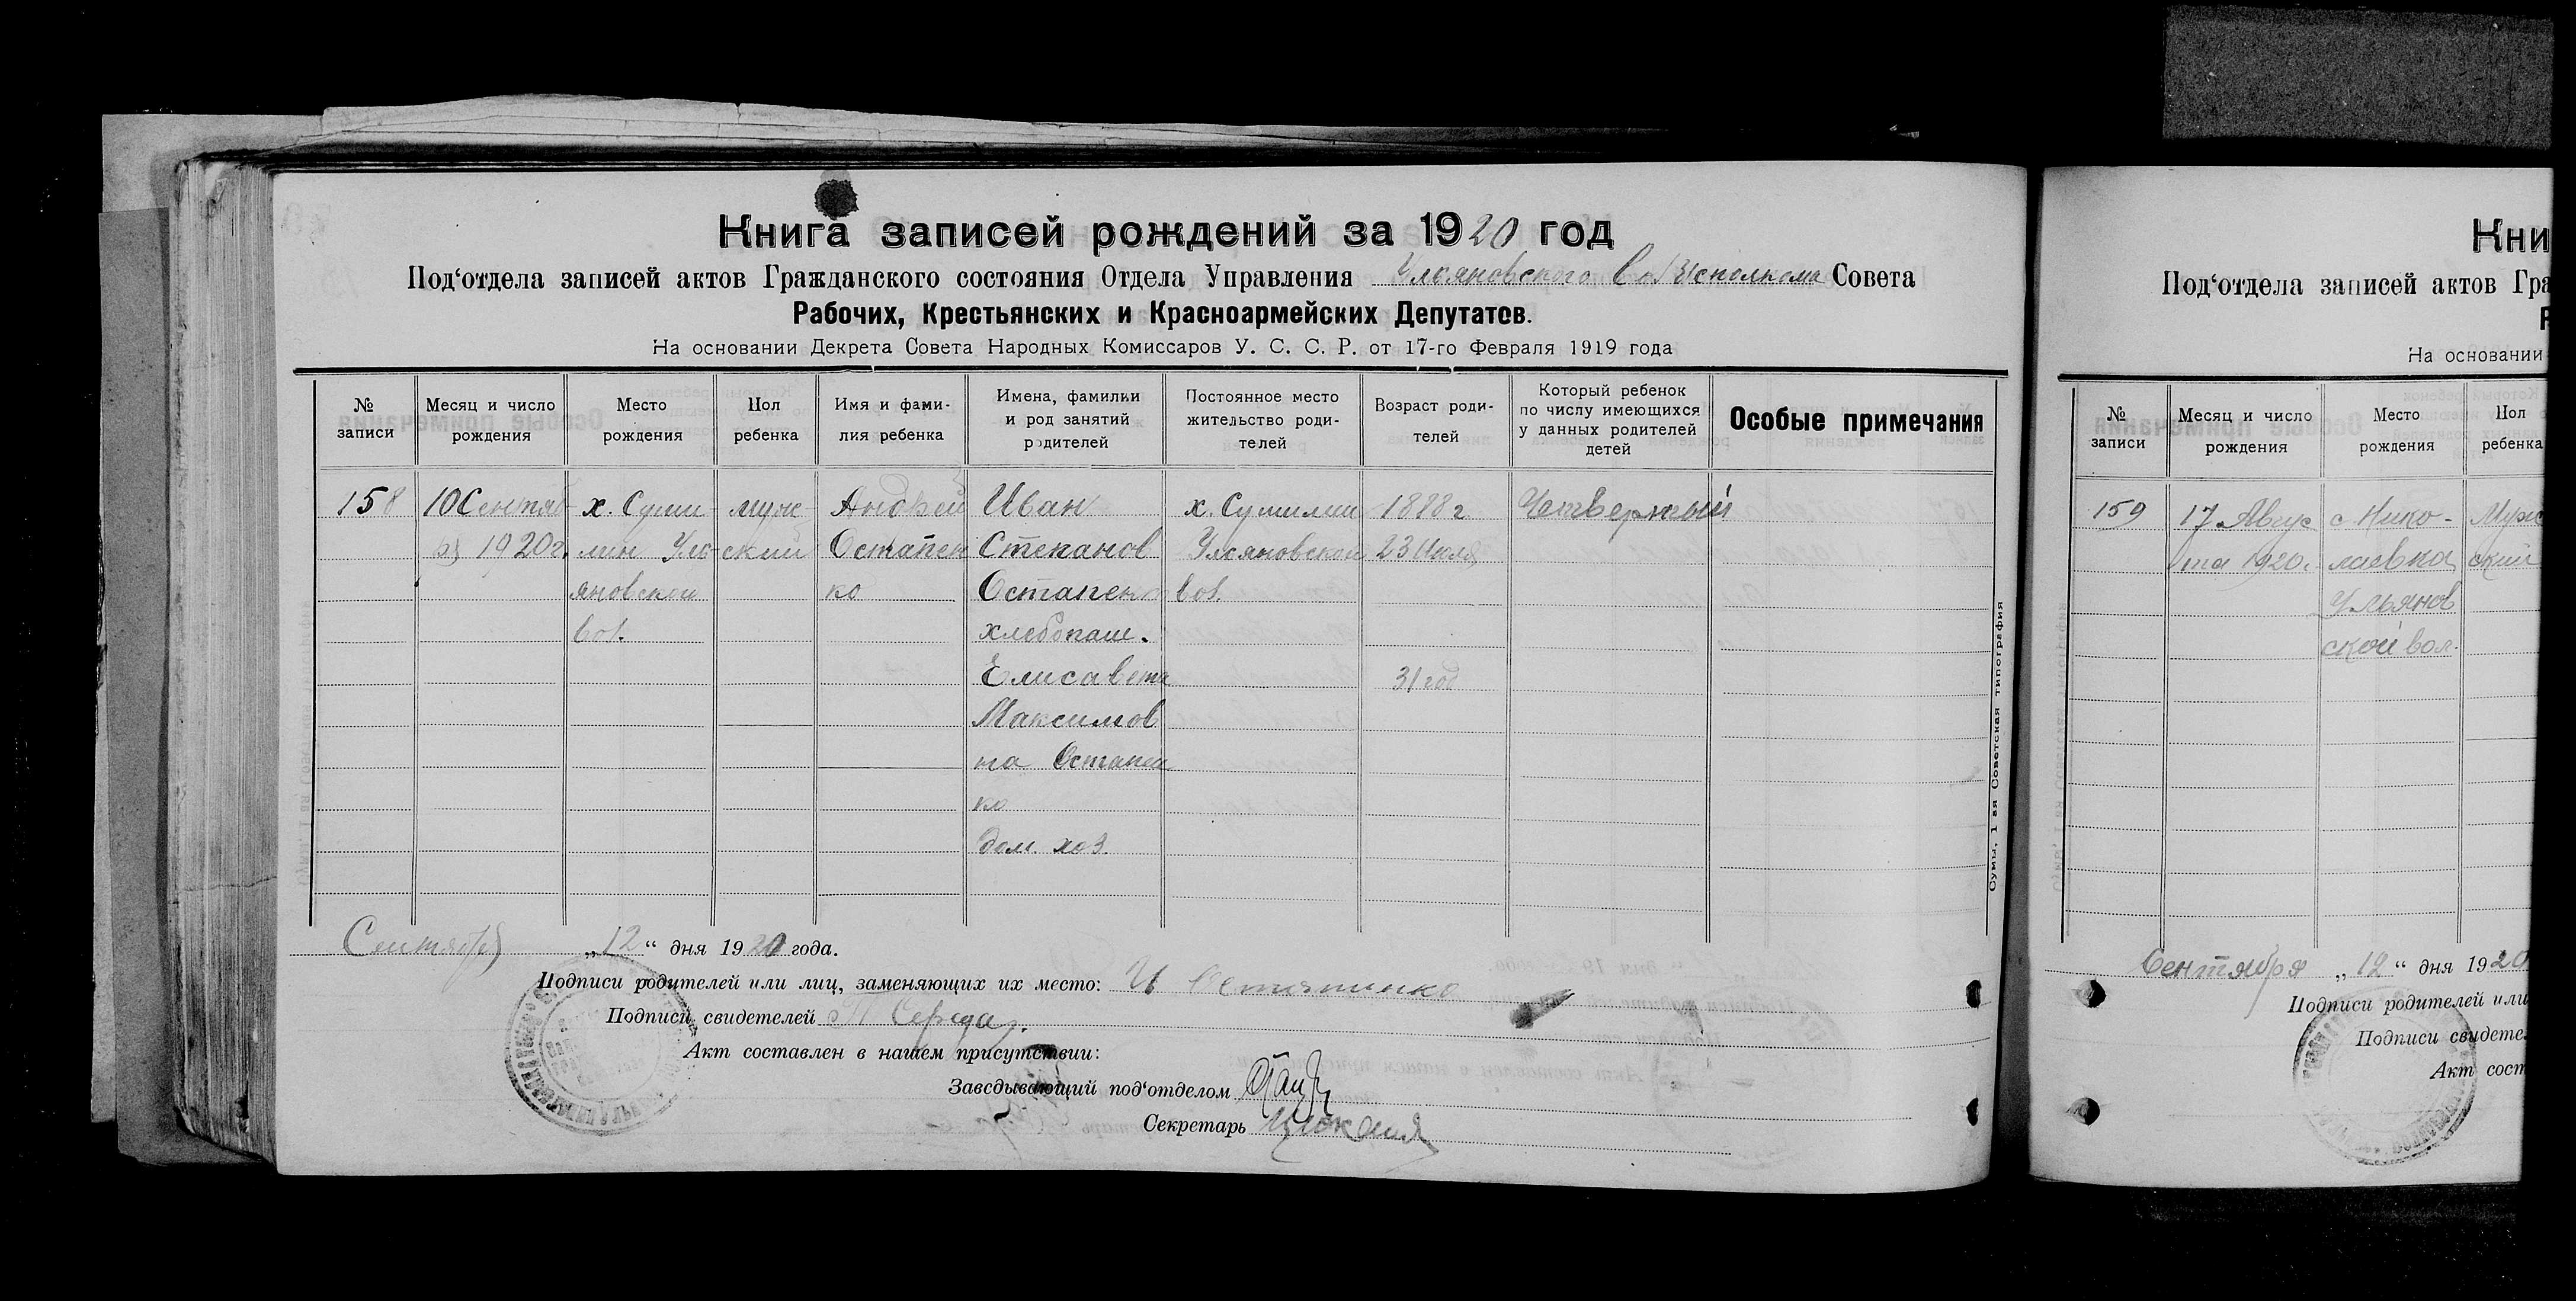 Книга записей рождений за 1920 год
Под'отдела записей актов Гражданского состояния Отдела Управления Ульяновского Исполкома Совета
Рабочих, Крестьянских и Красноармейских Депутатов.
На основании Декрета Совета Народных Комиссаров У. С. С. Р. от 17-го Февраля 1919 года
№ записи
Месяц и число рождения
Место рождения
Пол ребенка
Имя и фами-
лия ребенка
Имена, фамилии
и род занятий
родителей
Постоянное место
жительство роди-
телей
Возраст роди-
телей
Который ребенок
по числу имеющихся
у данных родителей
детей
Особые примечания
158
10 Сентяб
ря 1920 г.
х. Суши
лин Уль
яновской
вол.
муж
ской
Андрей
Остапен
ко
Иван
Степанов
Остапенко
хлебопаш.
Елисавета
Максимов
на Остапен
ко
дом. хоз.
х. Сушилин
Ульяновской
вол.
1888 г
23 Июля
31 год
Четвертый
Сумы, 1-ая Советская типография
Сентября „12“ дня 1920 года.
Подписи родителей или лиц, заменяющих их место: И Остапенко
Подписи свидетелей П Середа
Акт составлен в нашем присутствии:
Заведывающий под'отделом
Секретарь
Кни
Под'отдела записей актов Гра
Р
На основании
№ записи
Месяц и число рождения
Место рождения
Пол ребенка
159
17 Авгус
та 1920 г.
с Нико-
лаевка
Ульянов
ской вол.
Муж
ской
Сентября „12“ дня 1920
Подписи родителей или
Подписи свидете
Акт сост